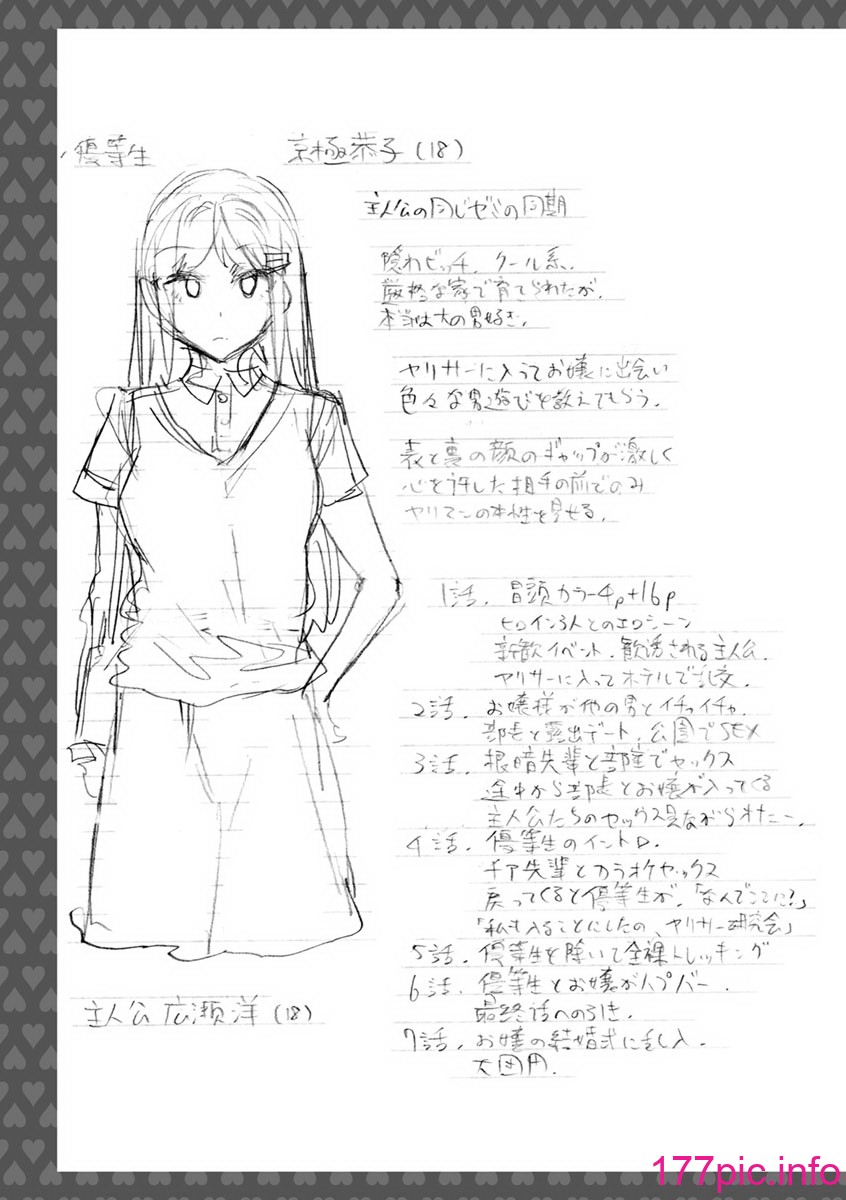 ・優等生
京極恭子(18)
主人公の同じゼミの同期
隠れビッチ、クール系、
厳格な家で育てられたが、
本当は大の男好き。
ヤリサーに入ってお嬢に出会い
色々な男遊びを教えてもらう。
表と裏の顔のギャップが激しく
心を許した相手の前でのみ
ヤリマンの本性を見せる。
1話. 冒頭カラー4p+16p
ヒロイン3人とのエロシーン
新歓イベント、勧誘される主人公、
ヤリサーに入ってホテルで乱交.
2話. お嬢様が他の男とイチャイチャ.
部長と露出デート、公園でSEX
3話. 根暗先輩と部室でセックス
途中から部長とお嬢が入ってくる
主人公たちのセックス見ながら
4話. 優等生のイントロ.
チア先輩とカラオケセックス
戻ってくると優等生が、「なんでここに?」
「私も入ることにしたの、ヤリサー研究会」
5話. 優等生を除いて全裸トレッキング
6話. 優等生とお嬢がハプバー.
最終話への引き.
7話. お嬢の結婚式に乱入.
大団円.
主人公 広瀬洋(18)
177pic.info